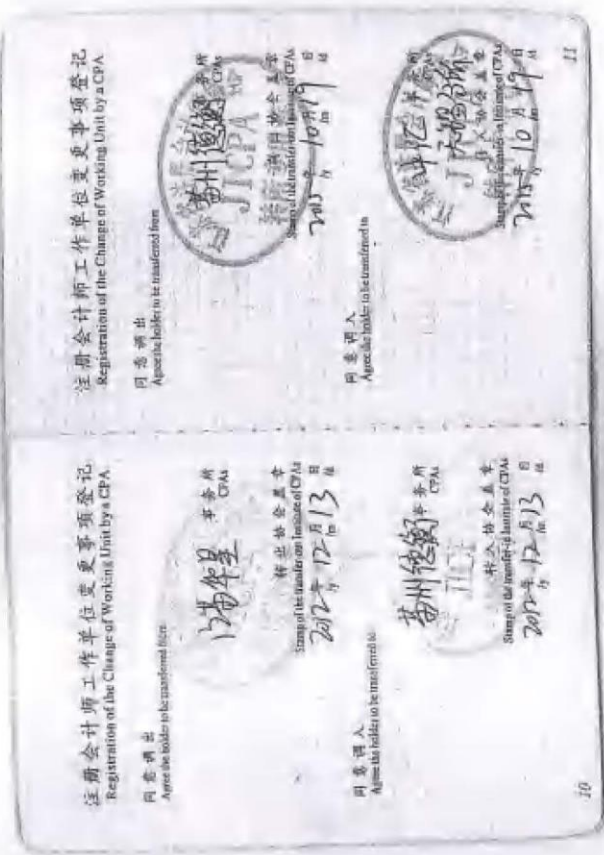 注册会计师工作单位变更事项登记
Registration of the Change of Working Unit by a CPA
同意调出
Agree the holder to be transferred from
事务所
CPAs
转出协会盖章
Stamp of the transfer-out Institute of CPAs
2012年 12月 13日
/y /m /d
同意调入
Agree the holder to be transferred to
苏州德衡 事务所
CPAs
转入协会盖章
Stamp of the transfer-in Institute of CPAs
2012年 12月 13日
/y /m /d
10
注册会计师工作单位变更事项登记
Registration of the Change of Working Unit by a CPA
同意调出
Agree the holder to be transferred from
苏州德衡 事务所
CPAs
JICPA
转出协会盖章
Stamp of the transfer-out Institute of CPAs
2015年 10月 19日
/y /m /d
同意调入
Agree the holder to be transferred to
事务所
CPAs
转入协会盖章
Stamp of the transfer-in Institute of CPAs
2015年 10月 19日
/y /m /d
11